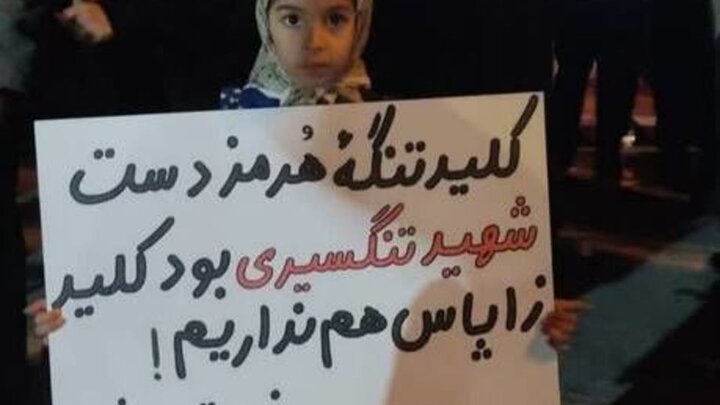 کلید تنگهٔ هُرمز دست
شهید تنگسیری بود کلید
زاپاس هم نداریم!